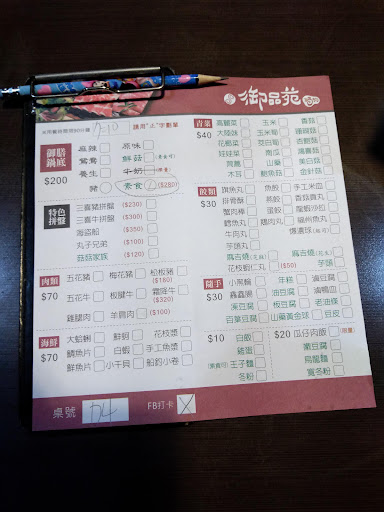 御品苑
用餐時間限制90分鐘
請用"正"字劃單
御膳鍋底 $200
麻辣 原味
鴛鴦 鮮菇(素食可)
養生 牛奶
豬 素食($280)
特色拼盤
三喜豬拼盤 ($230)
三喜牛拼盤 ($300)
海盜船 ($350)
丸子兄弟 ($100)
菇菇家族 ($120)
肉類 $70
五花豬 梅花豬 松板豬($180)
五花牛 板腱牛 霜降牛($320)
雞腿肉 羊肩肉 ($100)
海鮮 $70
大蛤蜊 鮮蚵 花枝漿
鯛魚片 白蝦 手工魚漿
鮮魚片 小干貝 船釣小卷
青菜 $40
高麗菜 玉米 香菇
大陸妹 玉米筍 珊瑚菇
花椰菜 茭白筍 杏鮑菇
娃娃菜 南瓜 鴻喜菇
茼蒿 山藥 美白菇
木耳 鮑魚菇 金針菇
餃類 $30
旗魚丸 魚餃 手工米血
排骨酥 燕餃 香菇貢丸
蟹肉棒 蛋餃 龍蝦沙拉
鱈魚丸 蝦肉丸 福州魚丸
牛肉丸 爆漿球
芋頭丸 麻吉燒
花枝蝦仁丸 ($50) 麻吉燒(芋頭)
隨手 $30
小黑輪 年糕 滷豆腐
鑫鑫腸 油豆腐 滷鴨血
凍豆腐 板豆腐 老油條
百葉豆腐 山藥黃金球 豆皮
$10 白飯
雞蛋
(素食可) 王子麵
冬粉
$20 瓜仔肉飯(限量)
嫩豆腐
烏龍麵
寬冬粉
桌號 A4
FB打卡 X